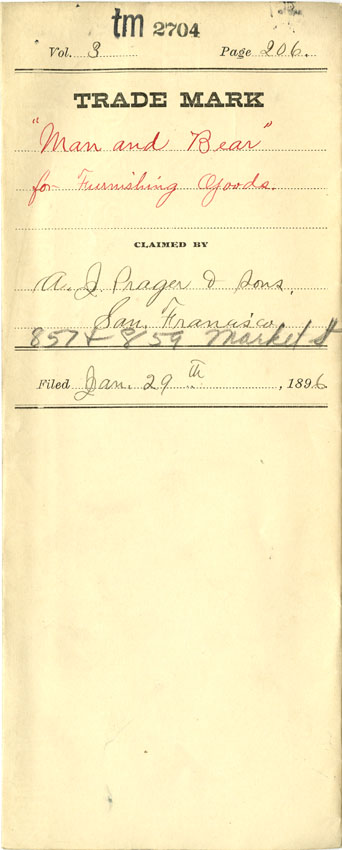 tm 2704
Vol. 3 Page 206.
TRADE MARK
"Man and Bear"
for Furnishing Goods.
CLAIMED BY
A. J. Prager & Sons,
San Francisco
857 + 859 Market St
Filed Jan. 29th, 1896